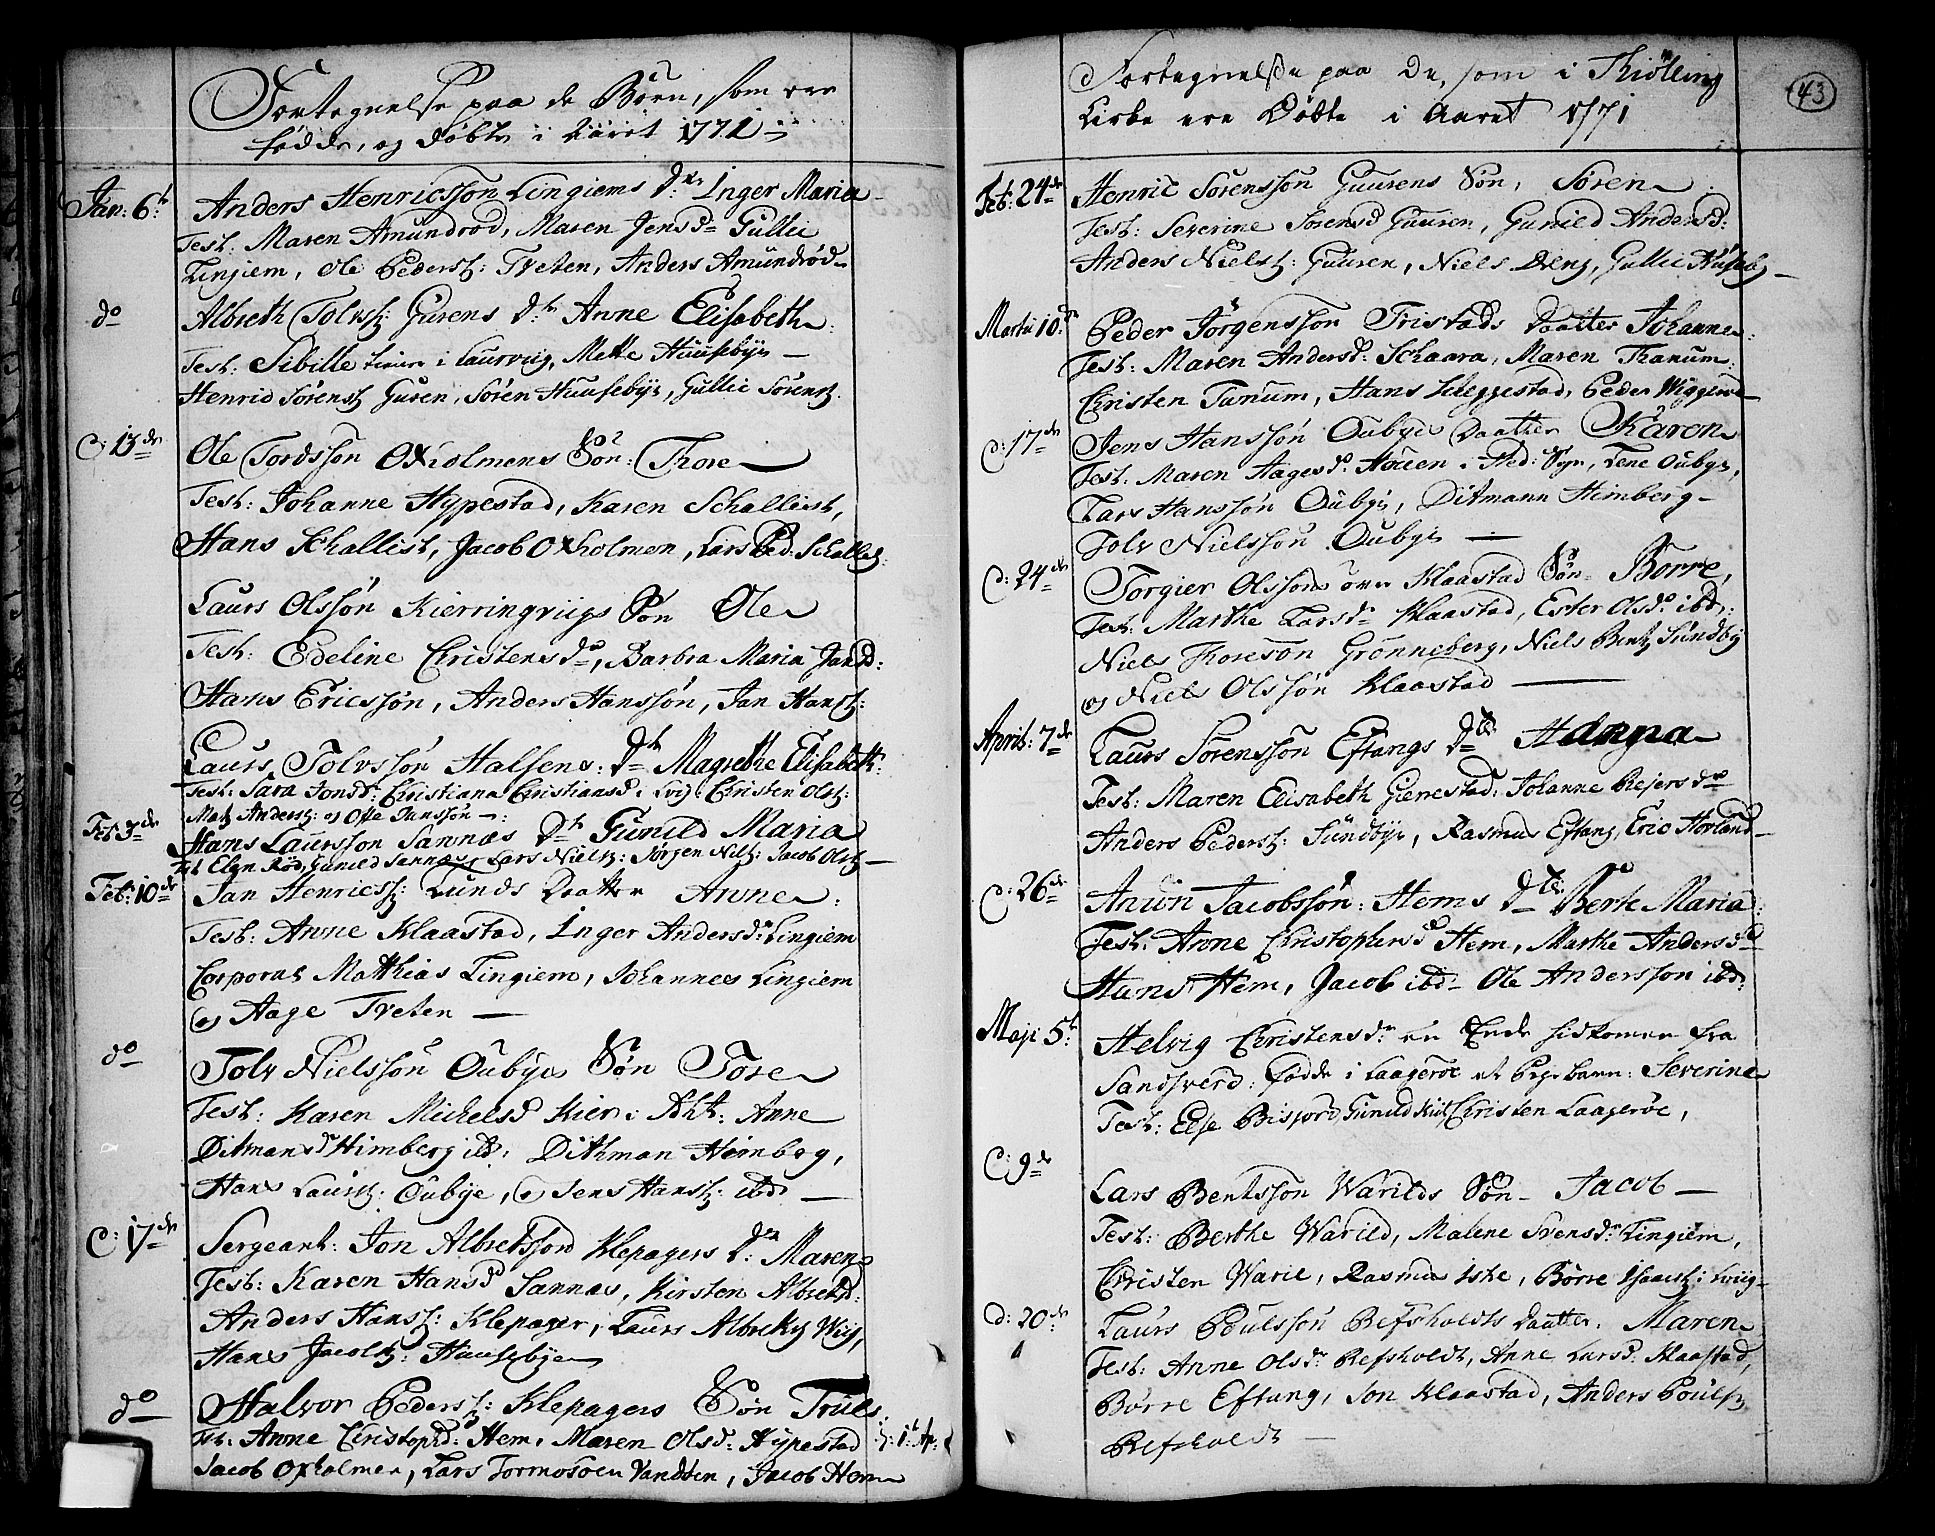 Fortegnelse paa de Börn, som ere
födde, og döbte i Aaret 1771
Jan: 6t Anders Henricssön Lingiems dtr Inger Maria
Test: Maren Amundröd, Maren Jensd. Gullic
Lingiem, Ole Peders: Tveten, Anders Amundröd
do Albreth Tolvs: Gurens dtr Anne Elisabeth
Test: Sibille i Laurvig, Mette Huusebÿe
Henric Sörens Guren, Sören Huusebÿe, Gullic Sörens
C: 13de Ole Tordssön Oxholmens Sön: Thore
Test: Johanne Hypestad, Karen Schallist,
Hans Schallist, Jacob Oxholmen, Lars Ped: Schallist
Laurs Olssön Kierringviigs Sön Ole
Test: Edeline Christensd, Barbra Maria Jansd:
Hans Ericssön, Anders Hanssön, Jan Hans:
Laurs Tolvssön Halsens: dtr Magrethe Elisabeth
Test: Sara Jonsd: Christiana Christiansd: i Lvig: Christen Ols:
Mats Anders: og Ole Hanssön
Feb: 3de Hans Laurssön Sannæs dtr Gunild Maria
Test Elen Röd, Gunild Sannæs, Lars Niels: Jörgen Niels: Jacob Ols
Feb: 10de Jan Henrics: Lunds Daatter Anne:
Test: Anne Klaastad, Inger Andersd: Lingiem
Corporal Matthias Lingiem, Johannes Lingiem
og Aage Tveten
do Tolv Nielssön Oubÿes Sön Tore
Test: Karen Michelsd Kier i Anne
Ditmansd Himberg Dithman Heimberg,
Hans Laurs: Oubye, og Jens Hans: ibd
C: 17de Sergeant: Jon Albretssön Klepagers dtr: Maren
Test: Karen Hansd Sannæs, Kirsten Albretsd:
Anders Hans: Klepager, Laurs Albrets Wiig,
Hans Jacobs: Huusebÿe
do Halvor Peders: Klepagers Sön Truls
Test: Anne Christophd: Hem, Maren Olsd: Hypestad
Jacob Oxholmen, Lars Tormosöen, Jacob Hem
Fortegnelse paa De, som i Thiölling
Kirke ere Döbte i Aaret 1771
43
Feb: 24de Henric Sörenssön Guurens Sön, Sören
Test: Severine Sörensd Guuren, Gunild Andersd:
Anders Niels: Guuren, Niels Gullic Huusebÿ
Martii 10de Peder Jörgenssön Tristads Daatter Johanne
Test: Maren Andersd: Schaara, Maren Thanum
Christen Tanum, Hans Skeggestad, Peder Wiggerød
C: 17de Jens Hanssön Oubÿes Daatter Karen
Test: Maren Aagesd. Houen i Hed: Sogn, Lene Oubÿe,
Lars Hanssön Oubÿe, Ditmann Himberg
Tolv Nielssön Oubÿe
C: 24de Torgier Olssön över Klaastad Sön Borre,
Test: Marthe Larsd Klaastad, Ester Olsd ibd:
Niels Thoresön Grönneberg, Niels Bents Sundbÿ
og Niels Olssön Klaastad
April: 7de Laurs Sörenssön Eftangs dtr
Test: Maren Elisabeth Gierestad: Johanne Rejersd
Anders Peders: Sundbÿe, Rasmus Eftang, Eric Horland
C: 26de Anwn Jacobssön: Hems dtr Berte Maria
Test: Anne Christophersd Hem, Marthe Andersd
Hans Hem, Jacob ibd Ole Anderssön ibd:
Maji 5t Helvig Christensd en Enke hidkomen fra
Sandsverd: födde i Laageröe et Pigebarn: Severine
Test: Else Bisjord, Gunild Christen Laageröe,
C: 9de Lars Bentssön Warilds Sön Jacob
Test: Berthe Warild, Malene Svensd: Lingiem,
Christen Waril, Rasmus Iske, Börre Isaachs: i Lviig
d: 20de Laurs Poulssön Refsholdts Daatter. Maren
Test: Anne Olsd Refsholdt, Anne Larsd: Klaastad,
Börre Eftang, Jon Klaastad, Anders Pouls
Refsholdt